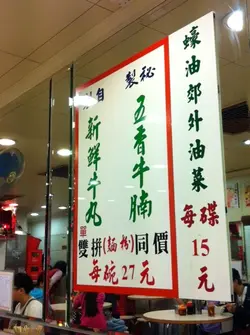 蠔油郊外油菜
每碟
15
元
秘製
五香牛腩
自
新鮮牛丸
單
雙拼(麵粉)同價
每碗27元